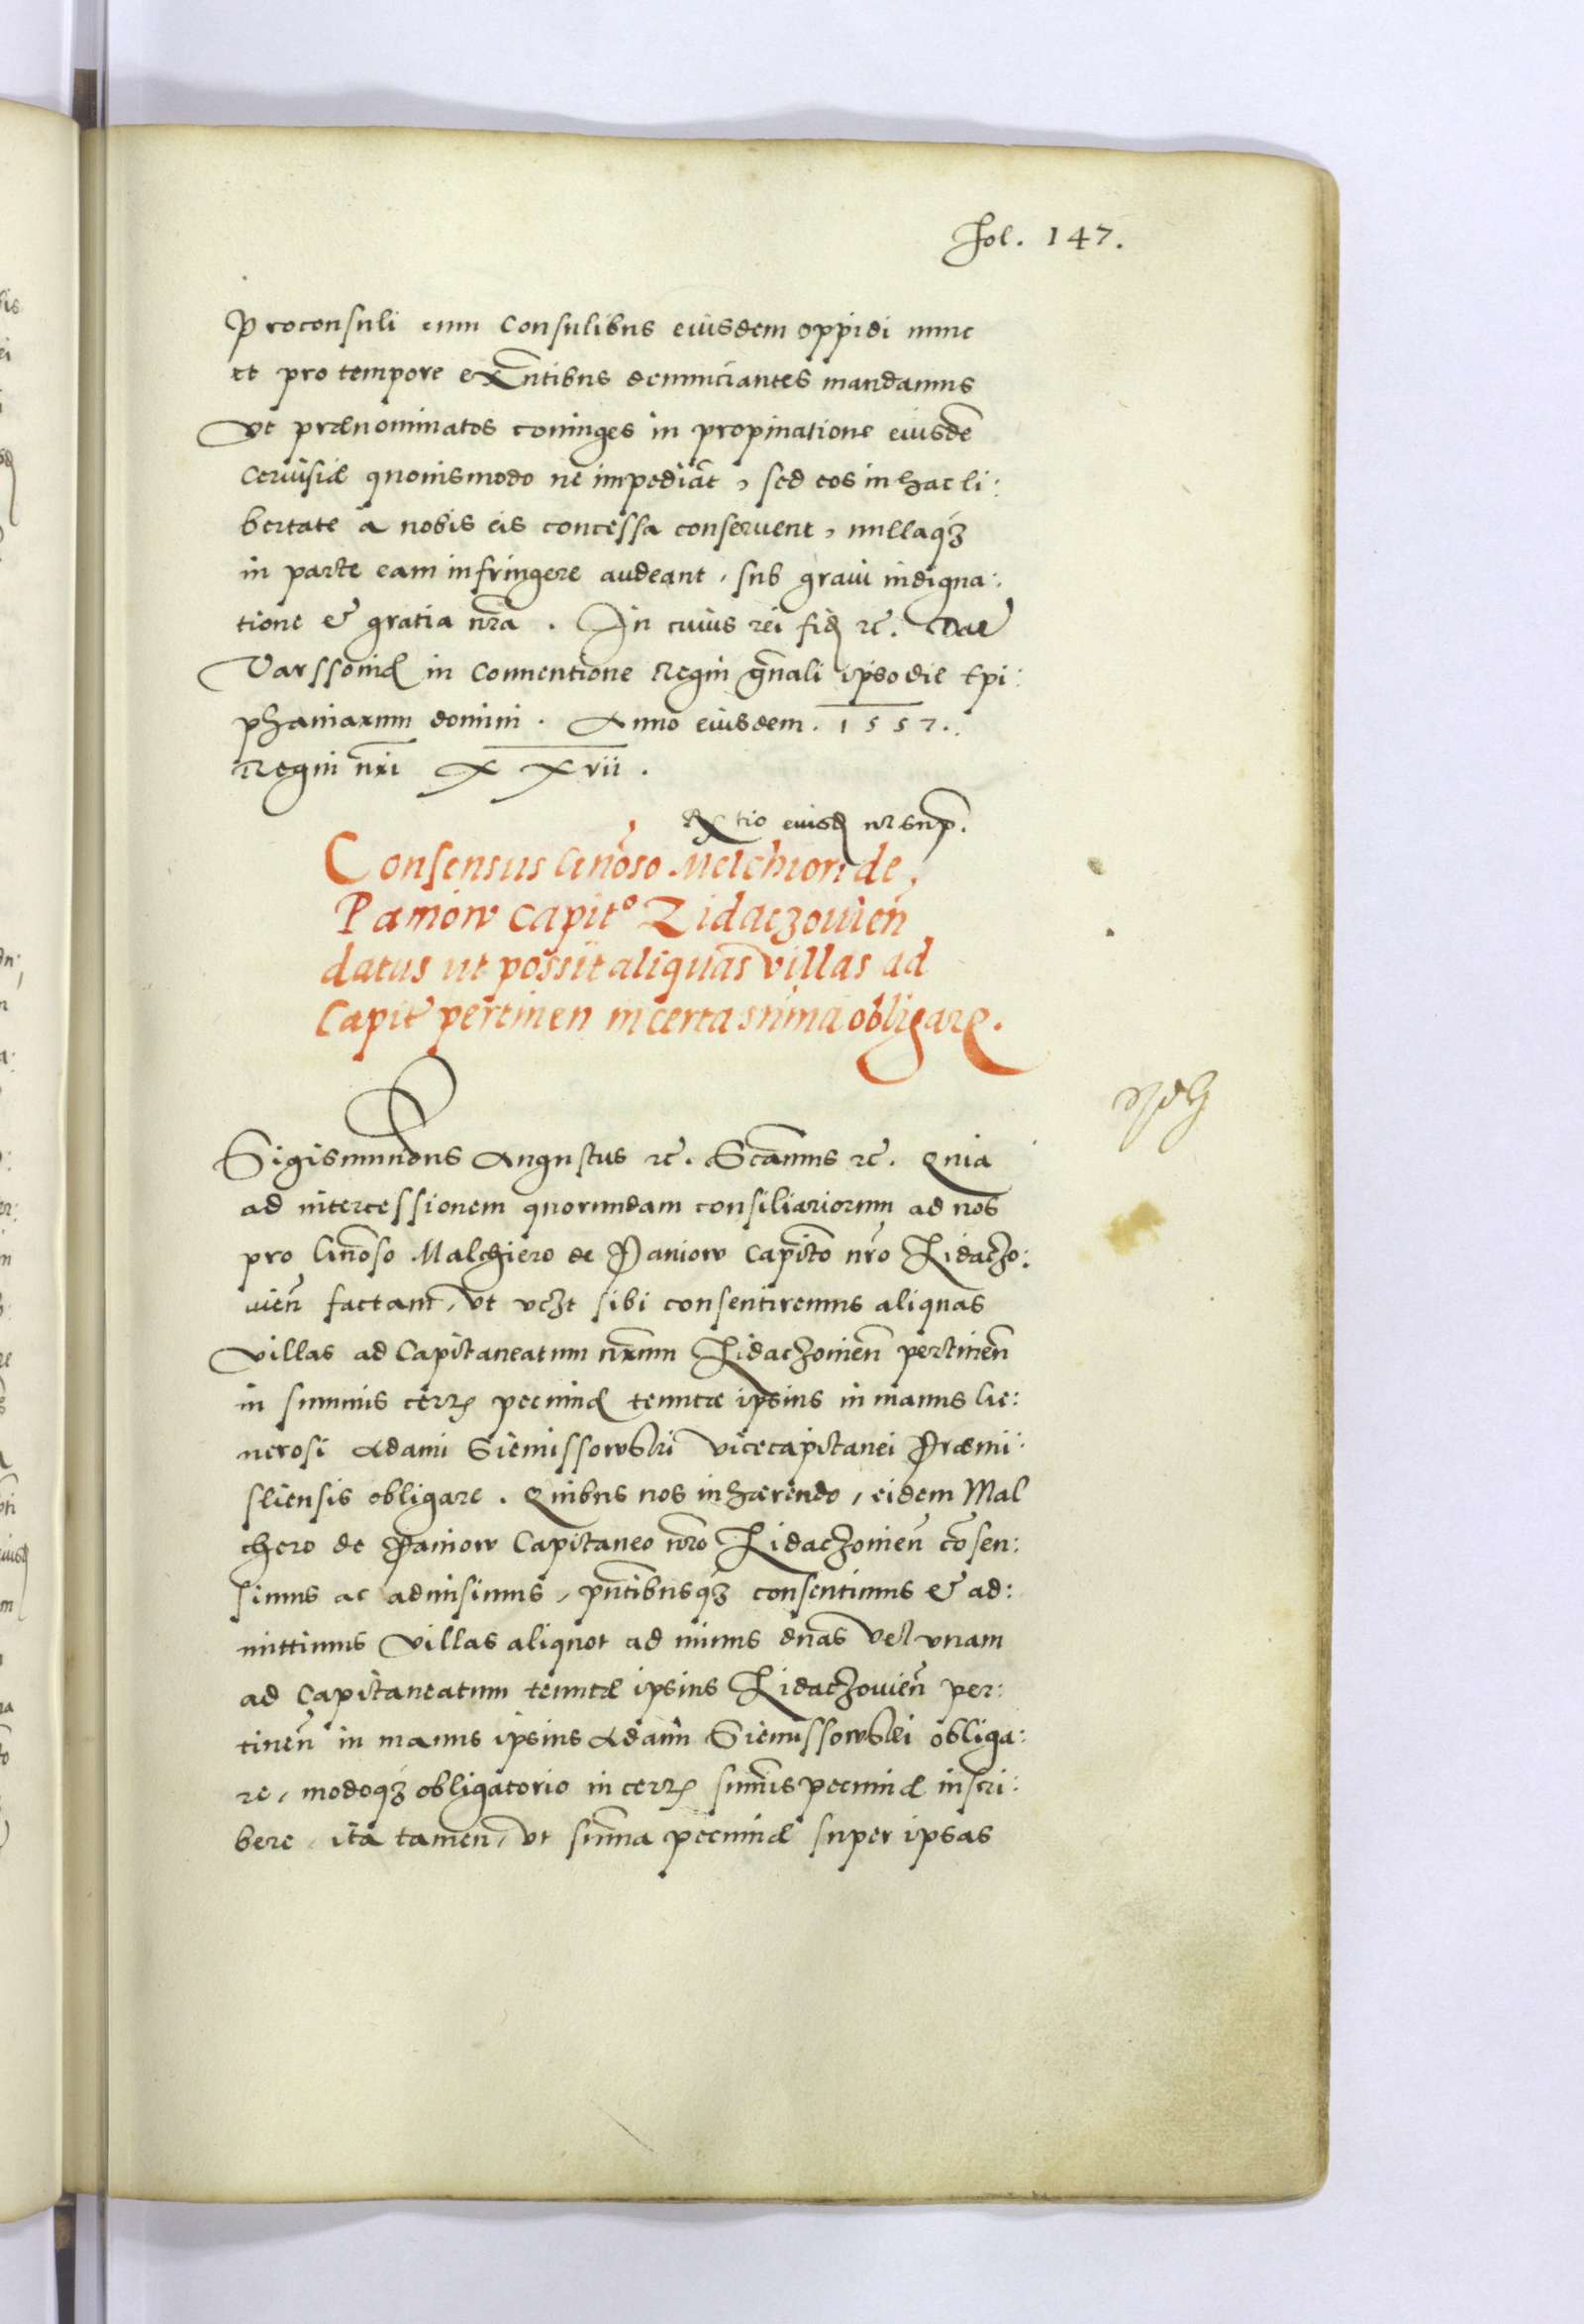 Fol. 147.
Proconsuli cum Consulibus eiusdem oppidi nunc
et pro tempore exñtibus denunciantes mandamus
Vt prænominatos coniuges in propinatione eiusdẽ
Cervisiæ quouismodo ne impediãt, sed eos in hac li:
bertate a nobis eis concessa conseruent, nullaqʒ
in parte eam infringere audeant, sub graui indigna:
tione et gratia nrã. In cuius rei fid rc̃. Dat
Varssouiæ in Conuentione Regni gñali ipso die Epi:
phaniarum domini. Anno eiusdem. 1557.
Regni nr̃i XXvii.
R̃tio eiusd ut sup̃.
Consensus Gñoso Melchiori de
Paniow Capit° Zidaczouieñ
datus ut possit aliquas villas ad
Capit pertinen in certa sũma obligare.
Sigismundus Augustus rc̃. Scãmus rc̃. Quia
ad intercessionem quorundam consiliariorum ad nos
pro Gñoso Malchiero de Paniow Capitõ nrõ Zidaczo:
uieñ factam, vt vczt sibi consentiremus aliquas
villas ad Capitaneatum nr̃um Zidaczouieñ pertineñ
in summis certis pecuniæ tenutæ ipsius in manus Ge:
nerosi Adami Siemissowski Vicecapitanei Præmi:
sliensis obligare. Quibus nos inhærendo, eidem Mal
chero de Paniow Capitaneo nrõ Zidaczouieñ cõsen:
simus ac admisimus, pñtibusqʒ consentimus et ad:
mittimus villas aliquot ad minus duas vel vnam
ad Capitaneatum tenutæ ipsius Zidaczouieñ per:
tineñ in manus ipsius Adami Siemissowski obliga:
re, modoqʒ obligatorio in certis sum̃is pecuniæ inscri:
bere, ita tamen, vt sum̃a pecuniæ super ipsas